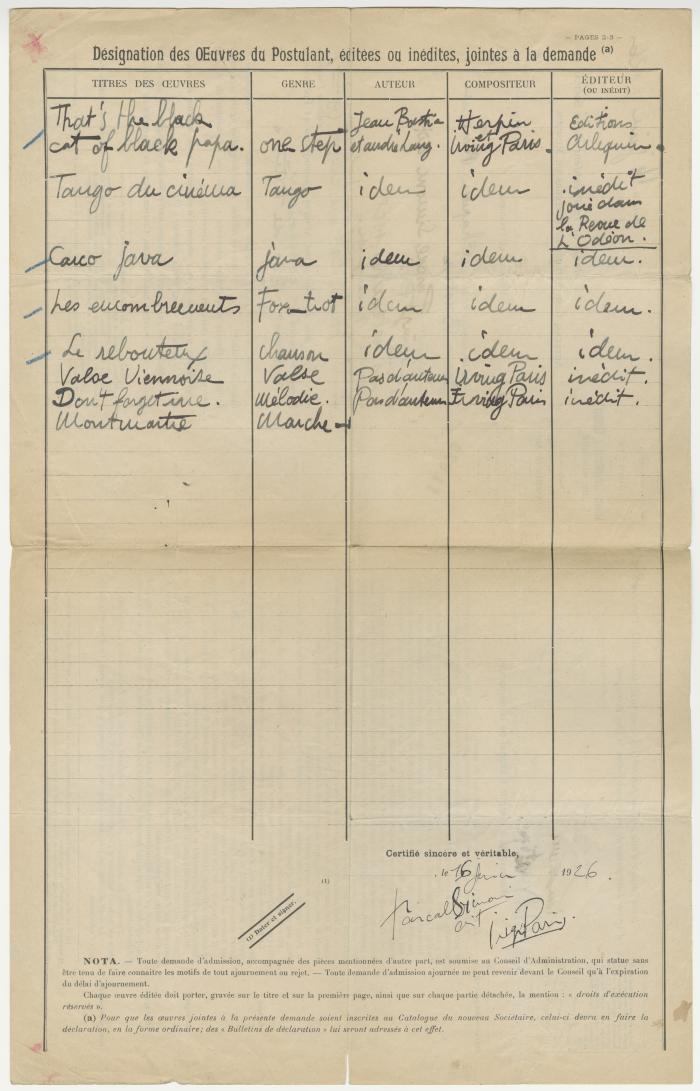 — PAGES 2-3 —
Désignation des Œuvres du Postulant, éditées ou inédites, jointes à la demande (a)
TITRES DES ŒUVRES GENRE AUTEUR COMPOSITEUR ÉDITEUR (OU INÉDIT)
That's the black Jean Bastia Herpin Editions
cat of black papa. one step et andré Lang. et Irving Paris. Arlequin.
Tango du cinéma Tango idem idem inédit
joué dans
la Revue de
L'Odéon.
Carco java java idem idem idem.
Les encombrements Fox-trot idem idem idem.
Le rebouteux chanson idem idem idem.
Valse Viennoise Valse Pas d'auteur Irving Paris inédit.
Don't forget me. Mélodie. Pas d'auteur Irving Paris inédit.
Montmartre Marche
Certifié sincère et véritable,
le 16 1926.
(1)
(1) Dater et signer.
Pascal
dit
Paris.
NOTA. — Toute demande d'admission, accompagnée des pièces mentionnées d'autre part, est soumise au Conseil d'Administration, qui statue sans
être tenu de faire connaitre les motifs de tout ajournement ou rejet. — Toute demande d'admission ajournée ne peut revenir devant le Conseil qu'à l'expiration
du délai d'ajournement.
Chaque œuvre éditée doit porter, gravée sur le titre et sur la première page, ainsi que sur chaque partie détachée, la mention : « droits d'exécution
réservés ».
(a) Pour que les œuvres jointes à la présente demande soient inscrites au Catalogue du nouveau Sociétaire, celui-ci devra en faire la
déclaration, en la forme ordinaire; des « Bulletins de déclaration » lui seront adressés à cet effet.